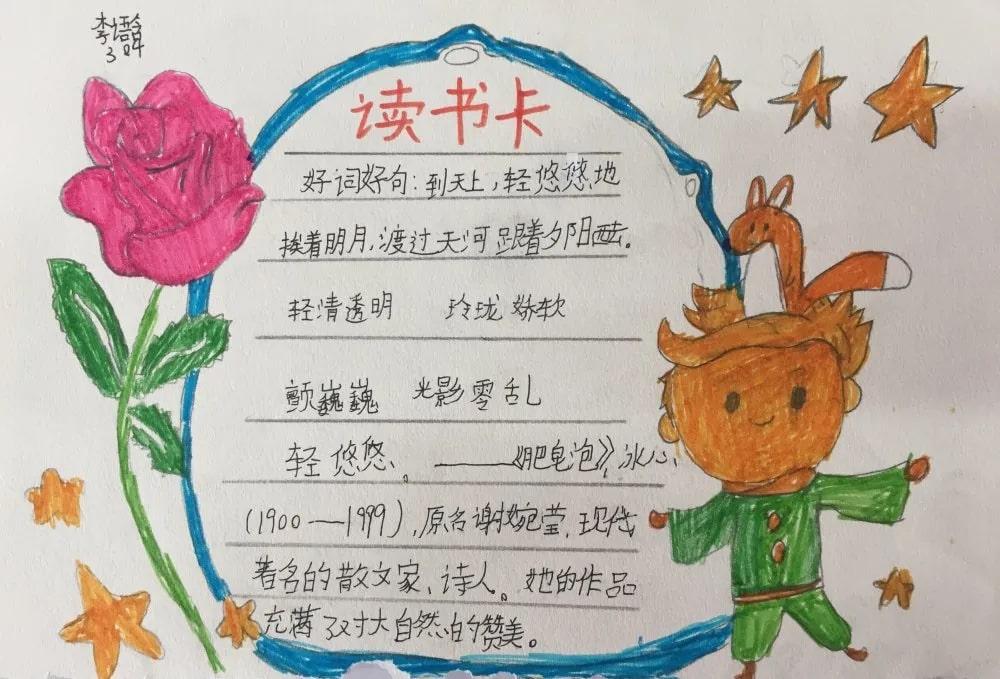 李语
3
读书卡
好词好句:到天上,轻悠悠地
挨着明月,渡过天河跟着夕阳西去。
轻清透明 玲珑娇软
颤巍巍 光影零乱
轻悠悠。——《肥皂泡》,冰心、
(1900—1999),原名谢婉莹,现代
著名的散文家、诗人。她的作品
充满了对大自然的赞美。